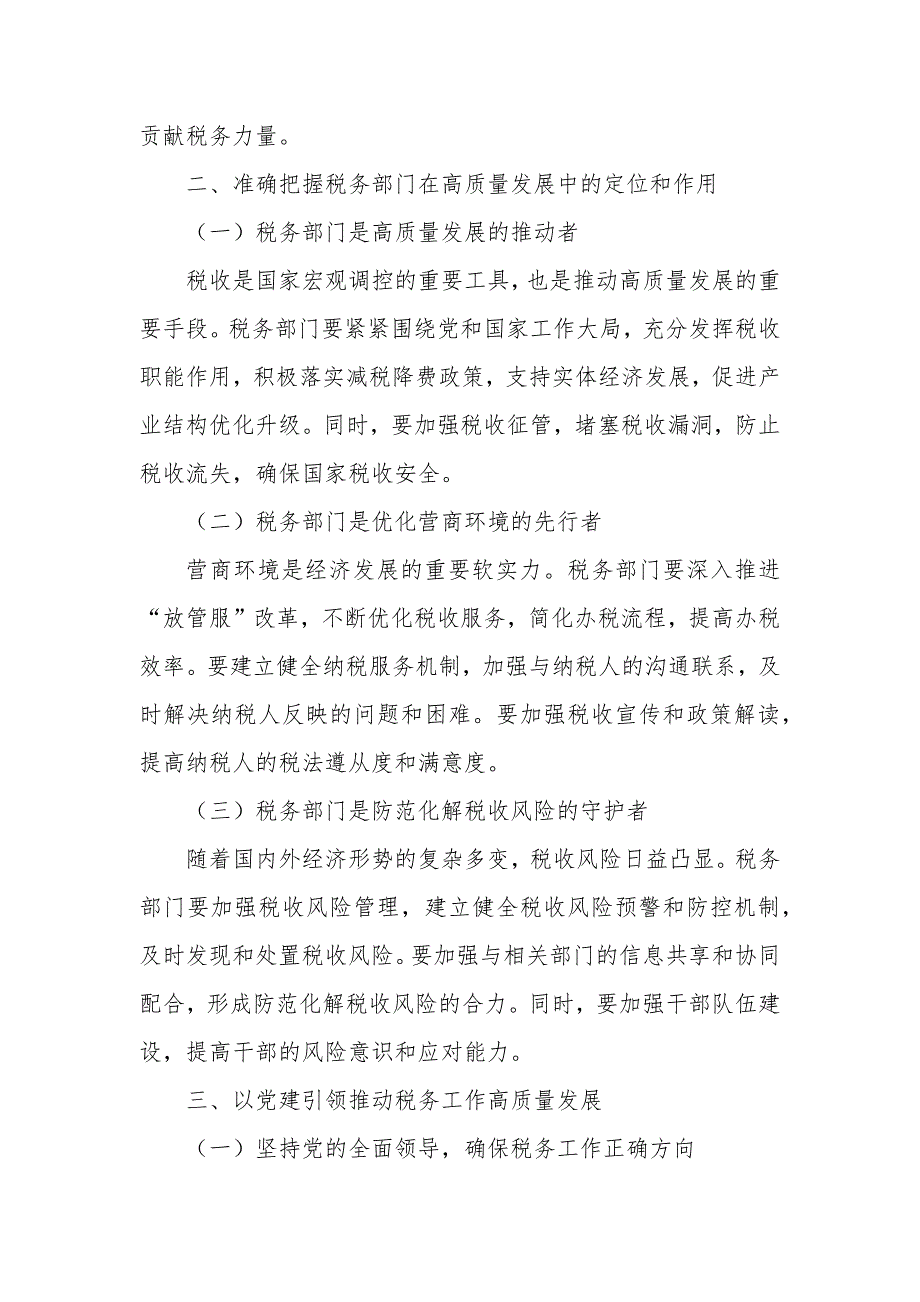 贡献税务力量。
二、准确把握税务部门在高质量发展中的定位和作用
（一）税务部门是高质量发展的推动者
税收是国家宏观调控的重要工具，也是推动高质量发展的重
要手段。税务部门要紧紧围绕党和国家工作大局，充分发挥税收
职能作用，积极落实减税降费政策，支持实体经济发展，促进产
业结构优化升级。同时，要加强税收征管，堵塞税收漏洞，防止
税收流失，确保国家税收安全。
（二）税务部门是优化营商环境的先行者
营商环境是经济发展的重要软实力。税务部门要深入推进
“放管服”改革，不断优化税收服务，简化办税流程，提高办税
效率。要建立健全纳税服务机制，加强与纳税人的沟通联系，及
时解决纳税人反映的问题和困难。要加强税收宣传和政策解读，
提高纳税人的税法遵从度和满意度。
（三）税务部门是防范化解税收风险的守护者
随着国内外经济形势的复杂多变，税收风险日益凸显。税务
部门要加强税收风险管理，建立健全税收风险预警和防控机制，
及时发现和处置税收风险。要加强与相关部门的信息共享和协同
配合，形成防范化解税收风险的合力。同时，要加强干部队伍建
设，提高干部的风险意识和应对能力。
三、以党建引领推动税务工作高质量发展
（一）坚持党的全面领导，确保税务工作正确方向